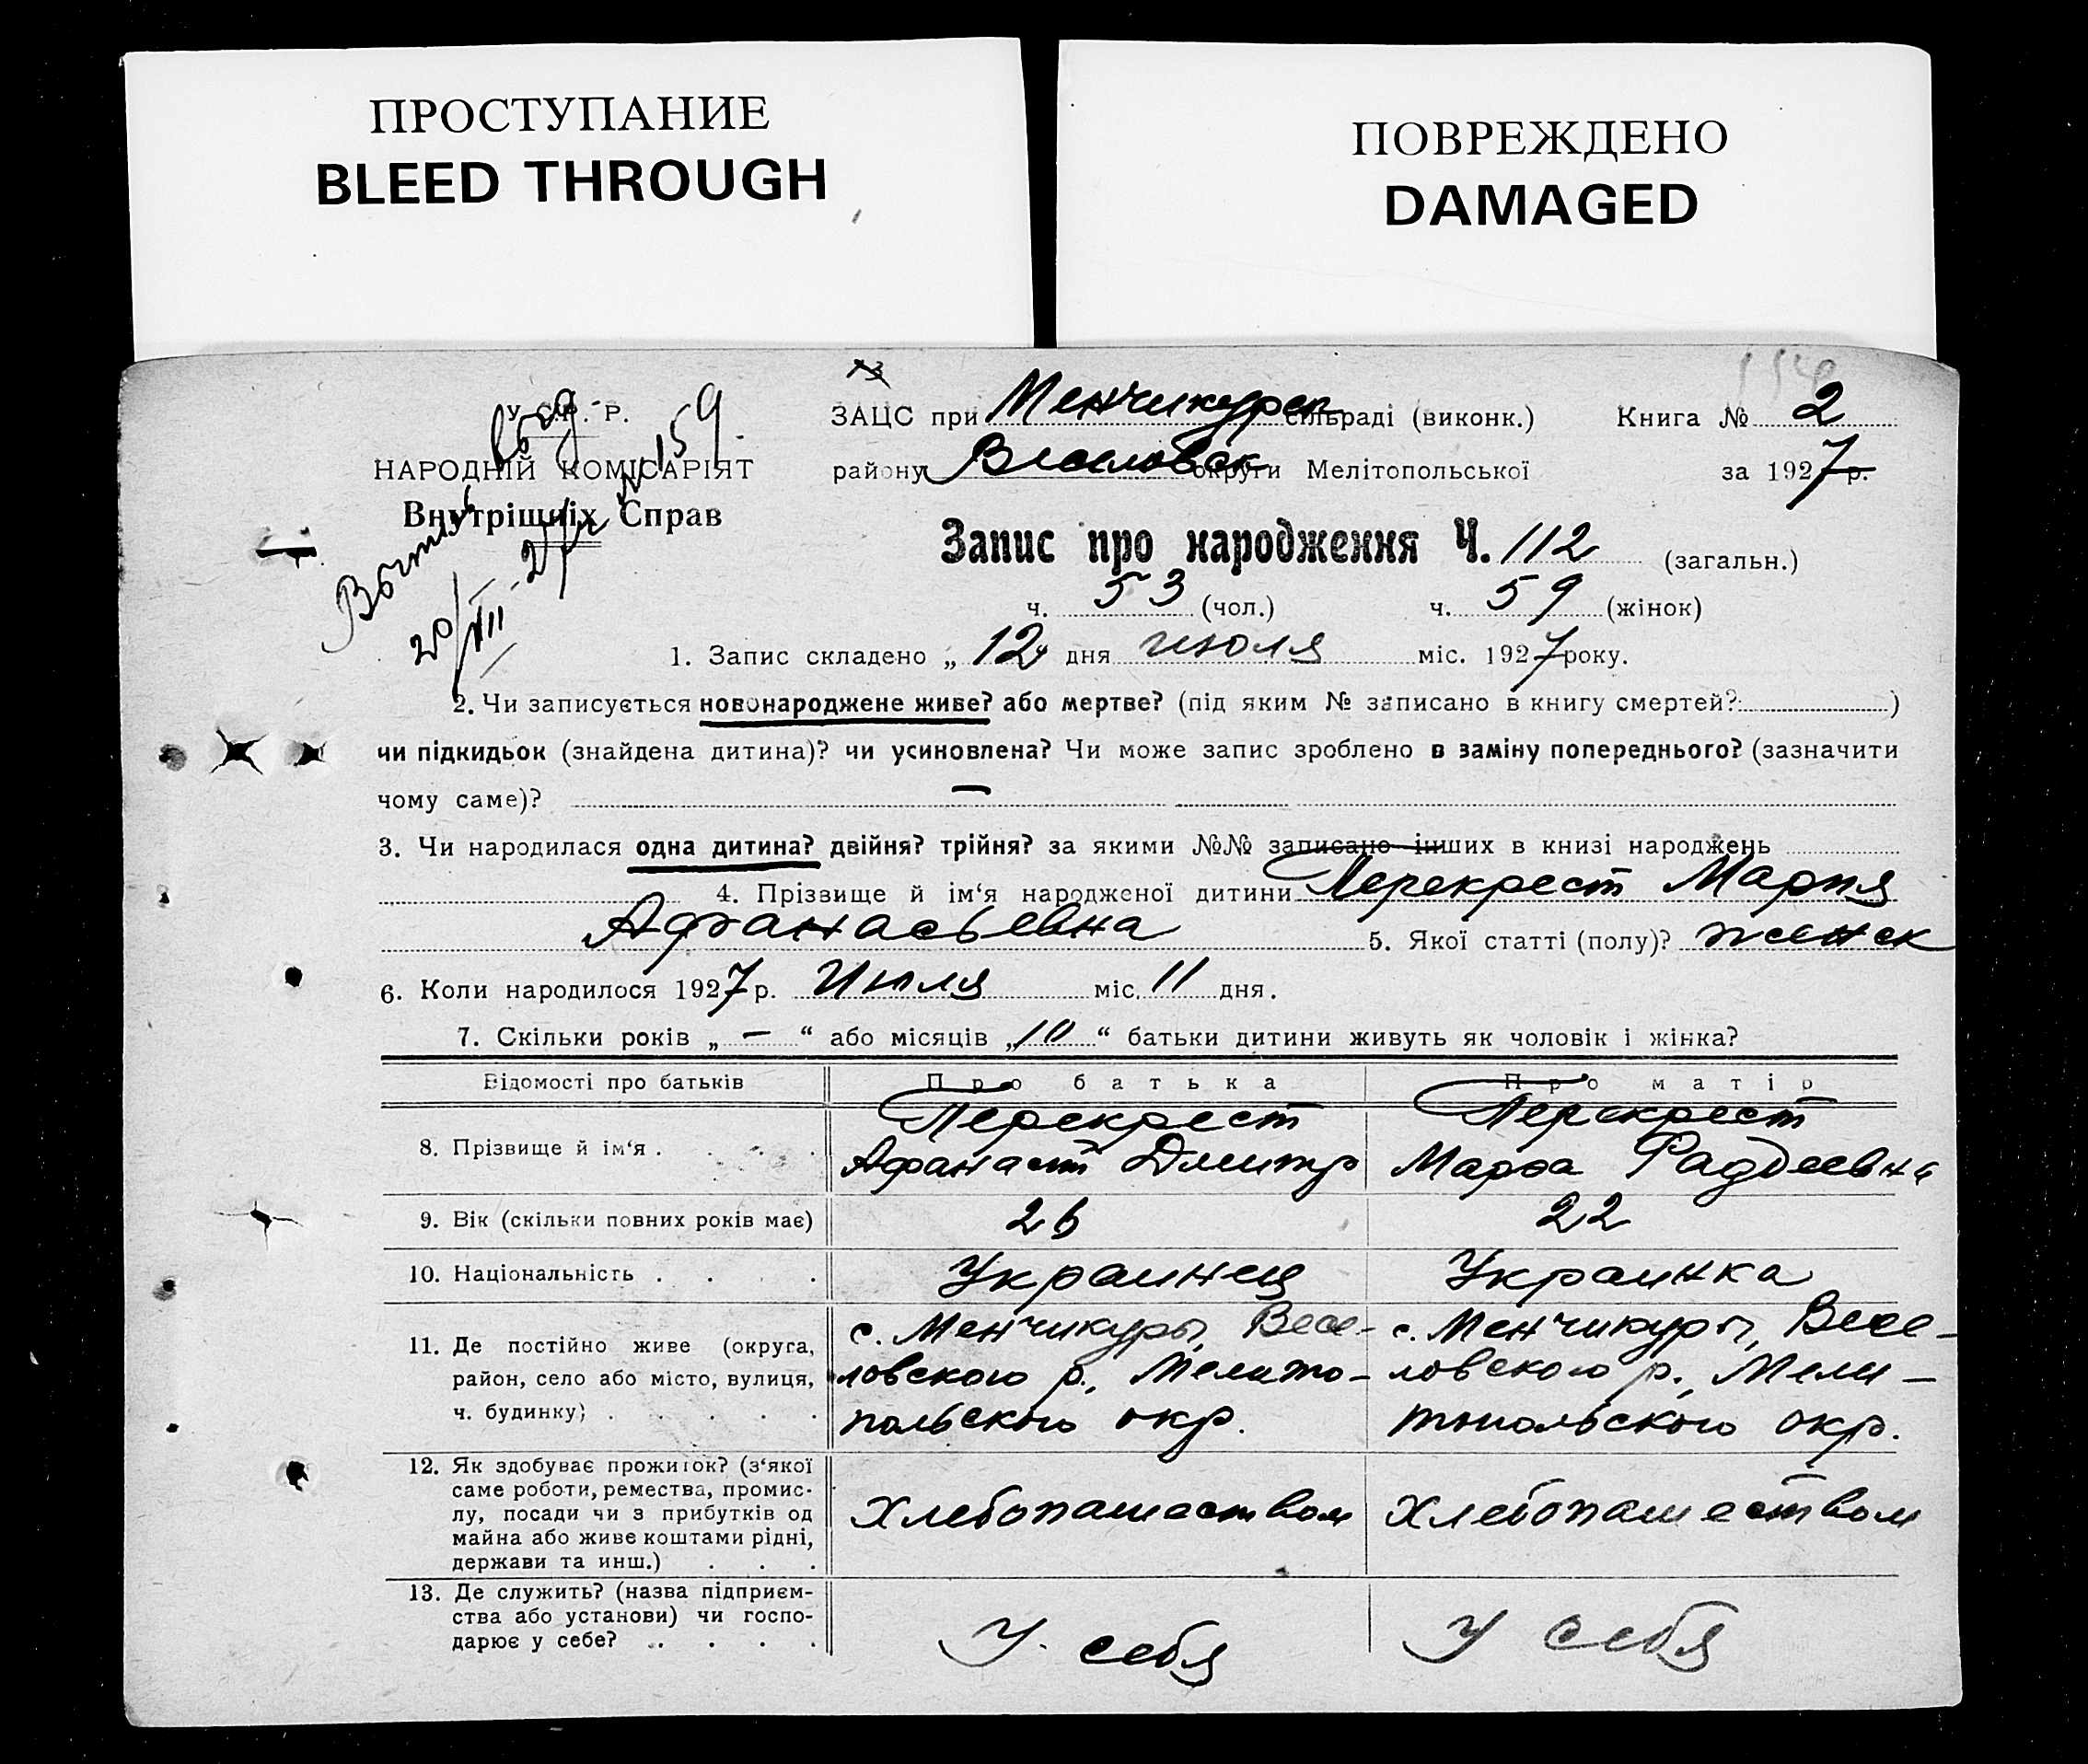 ПРОСТУПАНИЕ
BLEED THROUGH
ПОВРЕЖДЕНО
DAMAGED
У.С.Р.Р.
НАРОДНІЙ КОМІСАРІЯТ
Внутрішніх Справ
№ 159.
ЗАЦС при Менчикурск сільраді (виконк.) Книга № 2
району Веселовск округи Мелітопольської за 1927 р.
Запис про народження Ч. 112 (загальн.)
ч. 53 (чол.) ч. 59 (жінок)
1. Запис складено „ 12 дня июля міс. 1927 року.
2. Чи записується новонароджене живе? або мертве? (під яким № записано в книгу смертей?: )
чи підкидьок (знайдена дитина)? чи усиновлена? Чи може запис зроблено в заміну попереднього? (зазначити
чому саме)? —
3. Чи народилася одна дитина? двійня? трійня? за якими №№ записано інших в книзі народжень
4. Прізвище й ім‘я народженої дитини Перекрест Мария
Афанасьевна 5. Якої статті (полу)? женск
6. Коли народилося 1927 р. Июля міс. 11 дня.
7. Скільки років „ — “ або місяців „ 10 “ батьки дитини живуть як чоловік і жінка?
Відомості про батьків Про батька Про матір
8. Прізвище й ім‘я . . . . Перекрест Перекрест
Афанасий Дмитр Марфа Фаддеевна
9. Вік (скільки повних років має) 26 22
10. Національність . . . . Украинец Украинка
11. Де постійно живе (округа, с. Менчикуры, Весе- с. Менчикуры, Весе-
район, село або місто, вулиця, ловского р., Мелито- ловского р., Мели-
ч. будинку) . . . . . польского окр. топольского окр.
12. Як здобуває прожиток? (з‘якої
саме роботи, ремества, промис-
лу, посади чи з прибутків од Хлебопашеством Хлебопашеством
майна або живе коштами рідні,
держави та инш.) . . .
13. Де служить? (назва підприєм-
ства або установи) чи госпо- У себя У себя
дарює у себе? . . . .